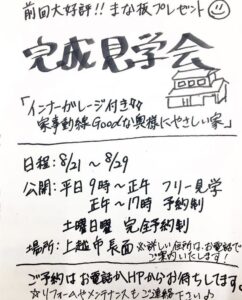 前回大好評!! まな板プレゼント
完成見学会
「インナーガレージ付き
家事動線Goodな奥様にやさしい家」
日程：8/21～8/29
公開：平日 9時～正午 フリー見学
正午～17時 予約制
土曜日曜 完全予約制
場所：上越市長面 ※詳しい住所は、お電話で
ご案内いたします！
ご予約はお電話かHPからお待ちしてます。
☆リフォームやメンテナンスもご連絡下さい♪